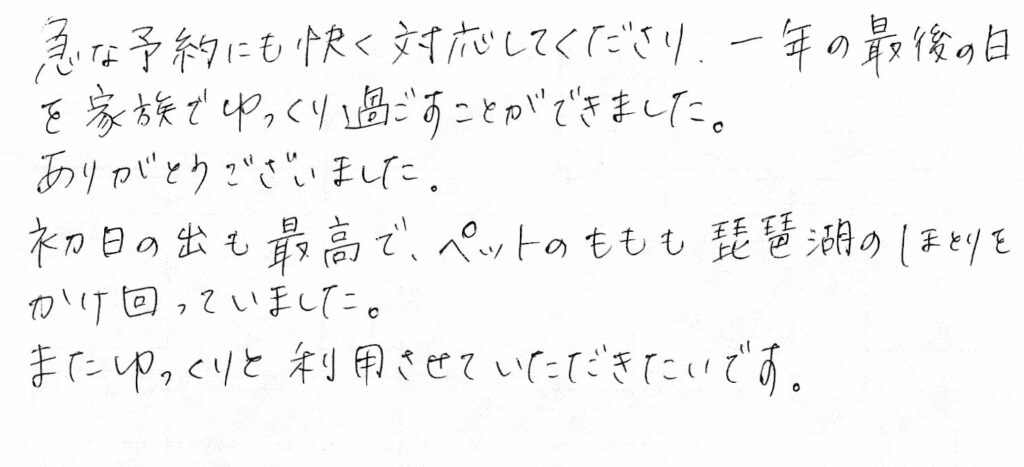 急な予約にも快く対応してくださり、一年の最後の日
を家族でゆっくり過ごすことができました。
ありがとうございました。
初日の出も最高で、ペットのももも琵琶湖のほとりを
かけ回っていました。
またゆっくりと利用させていただきたいです。